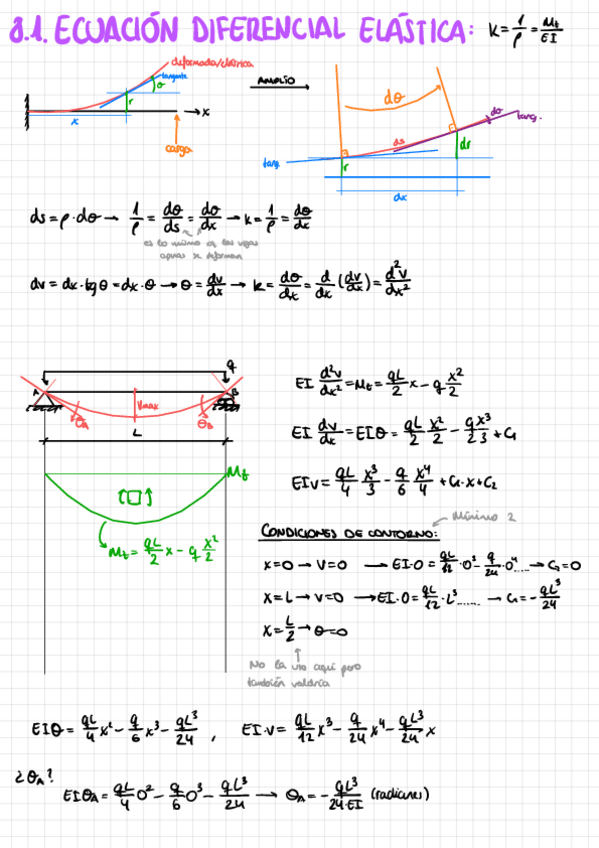 8.1. ECUACIÓN DIFERENCIAL ELÁSTICA: K = 1/ρ = Mz/EI
deformada/elástica
tangente
θ
r
x
x
carga
AMPLIO
dθ
dθ
tang.
ds
dr
tang.
r
dx
ds = ρ·dθ → 1/ρ = dθ/ds = dθ/dx → K = 1/ρ = dθ/dx
es lo mismo
apenas se deforman
dv = dx·tgθ = dx·θ → θ = dv/dx → K = dθ/dx = d/dx (dv/dx) = d²v/dx²
q
A
B
θA
Vmax
θB
L
Mz
Mz = qL/2 x - q x²/2
EI d²v/dx² = Mz = qL/2 x - q x²/2
EI dv/dx = EIθ = qL/2 x²/2 - q/2 x³/3 + C1
EIv = qL/4 x³/3 - q/6 x⁴/4 + C1·x + C2
Mínimo 2
CONDICIONES DE CONTORNO:
x=0 → v=0 → EI·0 = qL/12·0³ - q/24·0⁴..... → C2=0
x=L → v=0 → EI·0 = qL/12·L³....... → C1 = -qL³/24
x=L/2 → θ=0
No la uso aquí pero
también valdría
EIθ = qL/4 x² - q/6 x³ - qL³/24 , EI·v = qL/12 x³ - q/24 x⁴ - qL³/24 x
¿θA?
EIθA = qL/4 0² - q/6 0³ - qL³/24 → θA = - qL³/24·EI (radianes)